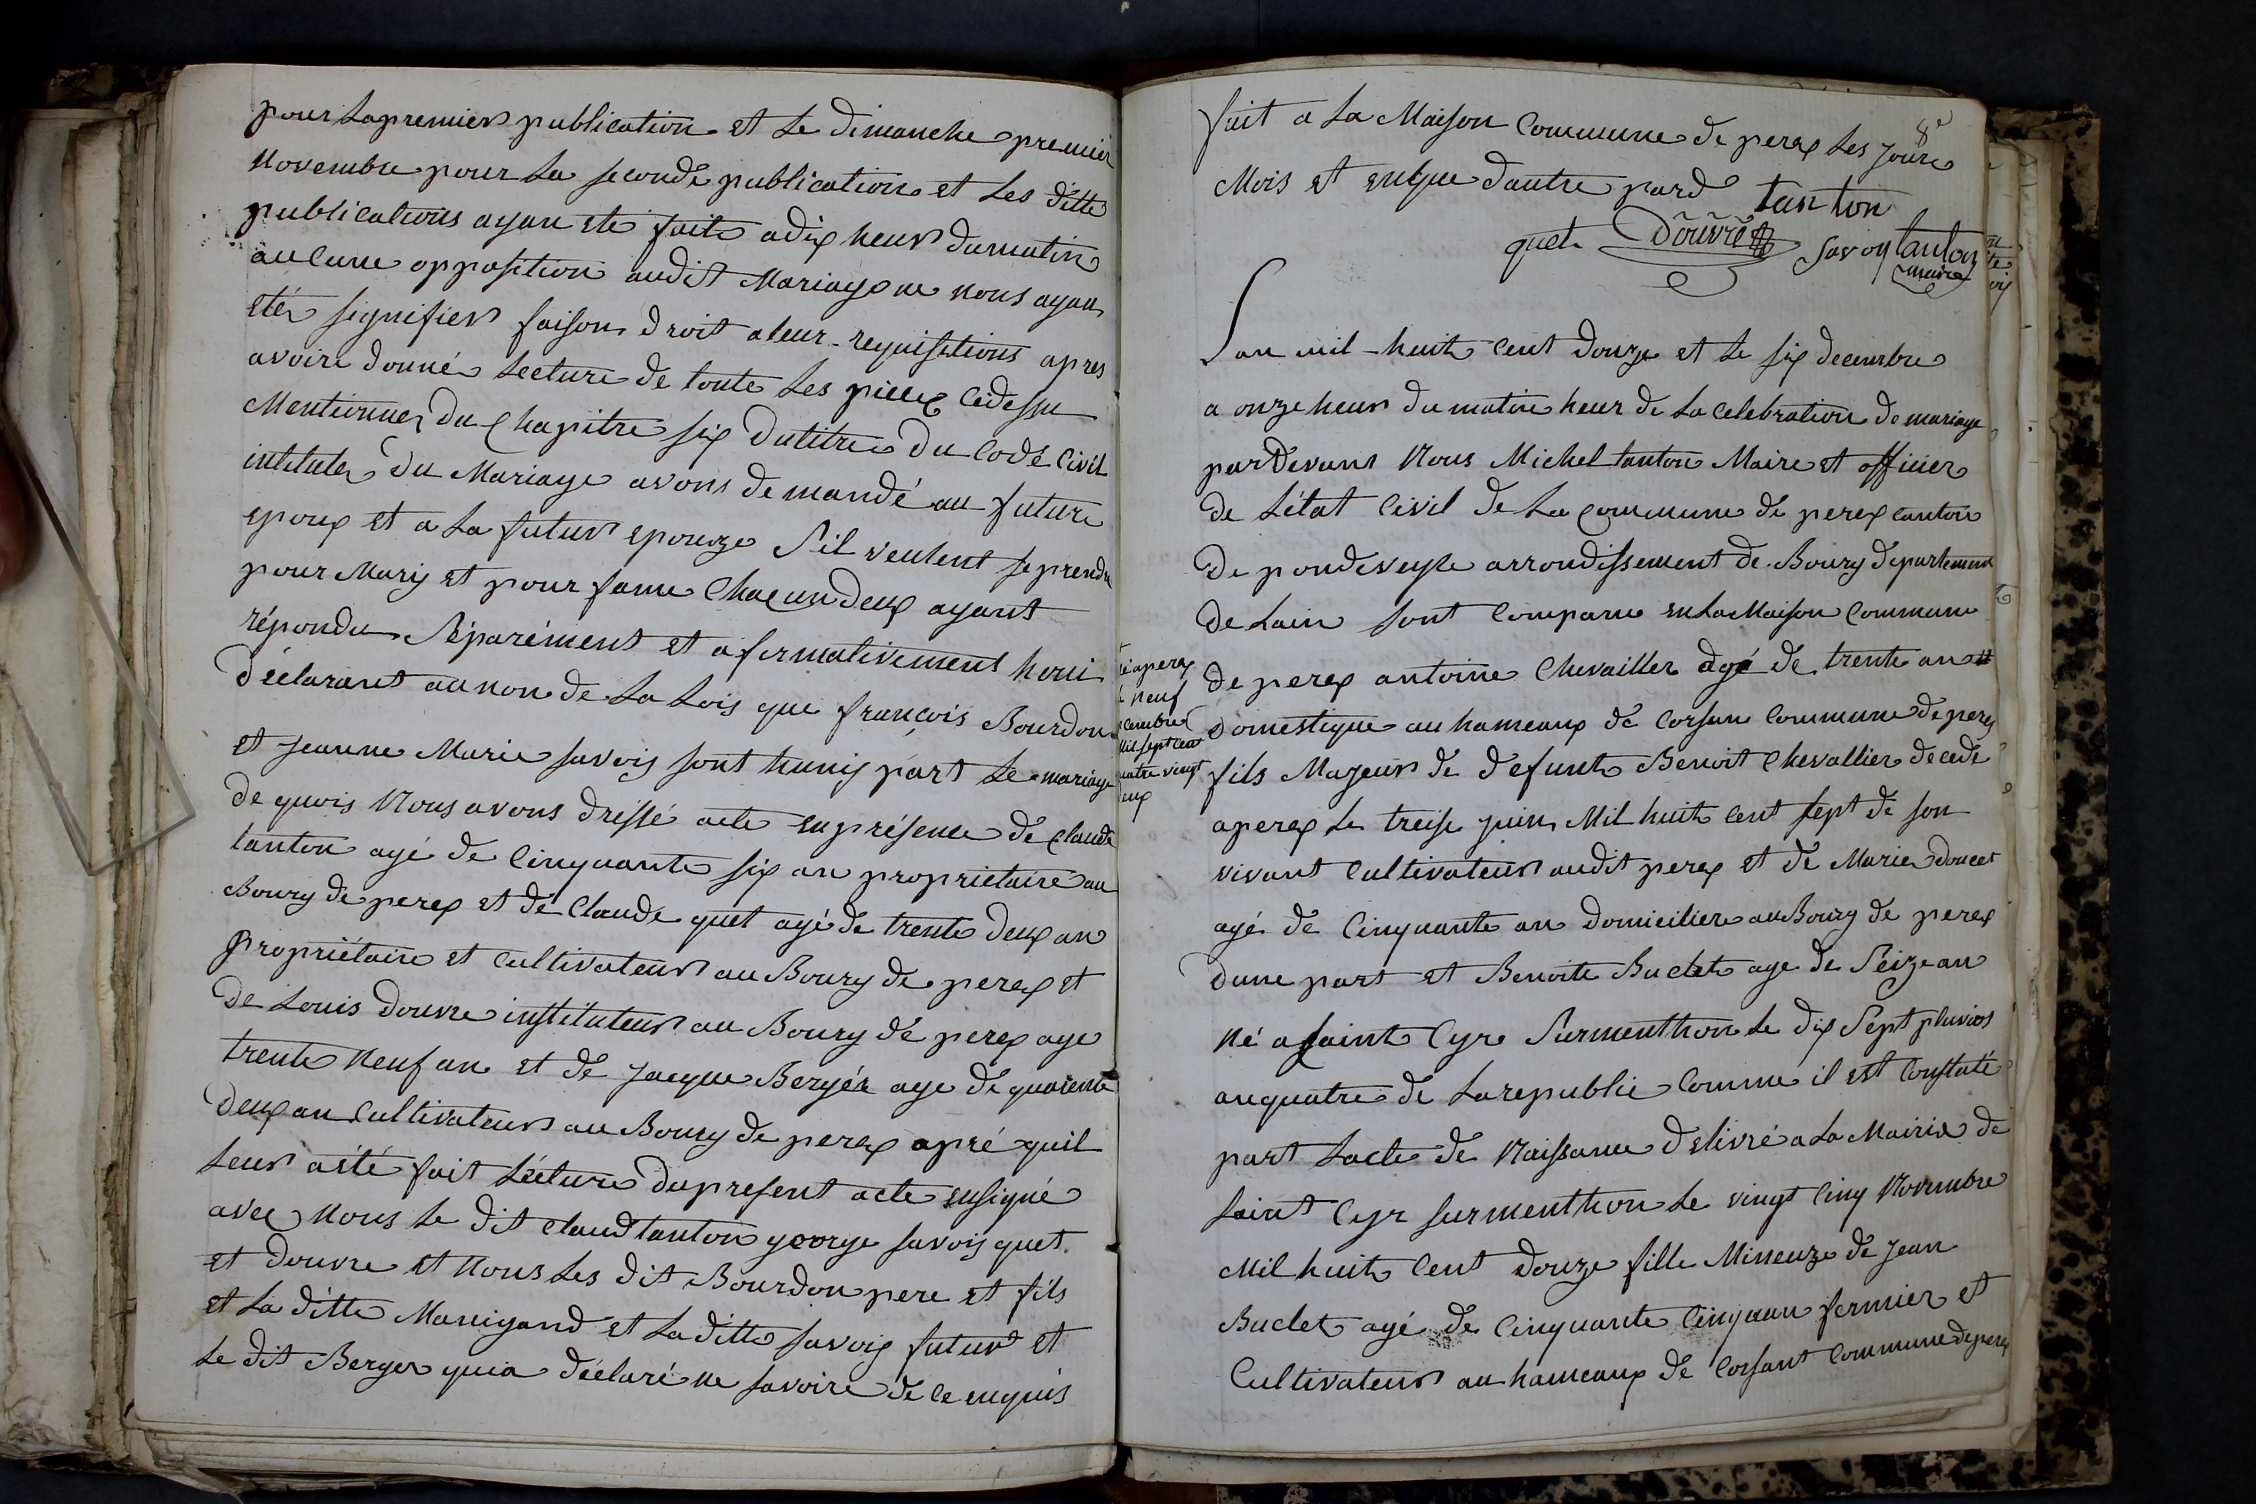 pour La premier publication et Le dimanche premier
Novembre pour La seconde publication et Les ditte
publications ayan eté faite a dix heur du matin
aucune opposition audit Mariage ne nous ayan
etér signifier faison droit a leur requisitions apres
avoire donné Lecture de toute Les piece cidessu
Mentionner du Chapitre six du titre du Code Civil
intituler du Mariage avons demandé au future
epoux et a La futur epouze S'il veulent se prendre
pour Mary et pour fame Chacun deux ayant
répondu Séparément et afirmativement houi
déclarant au non de La Lois que françois Bourdon
et Jeanne Marie savoy sont huniy part Le mariage
de quois Nous avons dressé acte en présence de Claude
tanton agé de Cinquante six an propriétaire au
Bourg de perex et de Claude quet agé de trente deux an
propriétaire et Cultivateur au Bourg de perex et
de Louis douvre instituteur au Bourg de perex age
trente neuf an et de Jacque Bergér age de quarente
deux an Cultivateur au Bourg de perex apré quil
Leur a été fait Lécture du present acte ensigné
avec nous Le dit Claud tanton george savoy quet
et douvre et nous Les dit Bourdon pere et fils
et La ditte Manigand et La ditte savoy futur et
Le dit Berger qui a déclaré ne savoire de ce enquis
8e
fait a La Maison Commune de perex Les Jour
Mois et enque dautre pard tanton
quet Douvre Savoy tanton
maire
Lan mil huit cent douze et Le six decembre
a onze heur du matin heur de La Celebration de mariage
pardevant Nous Michel tanton Maire et officier
de L'état Civil de La Commune de perex canton
de pondeveyle arrondissement de Bourg departement
de Lain sont Comparu en La Maison Commune
de perex antoine Chevallier agé de trente an
né a perex
Le neuf
decembre
Mil sept cent
quatre vingt
deux
domestique au hameaux de Corsan Commune de perex
fils Majeur de defunt Benoit Chevallier decede
a perex Le treise juin Mil huit cent sept de son
vivant Cultivateur audit perex et de Marie doucet
agé de Cinquante an domicilier au Bourg de perex
dune part et Benoite Buclet age de Seize an
Né a saint Cyre Surmenthon Le dix Sept pluvios
an quatre de La republic Comme il est Constaté
part Lacte de Naissance delivré a La Mairie de
saint Cyr surmenthon Le vingt Cinq Novembre
Mil huit Cent douze fille Mineuze de Jean
Buclet agé de Cinquante Cinq an fermier et
Cultivateur au hameaux de Corsant Commune de perex